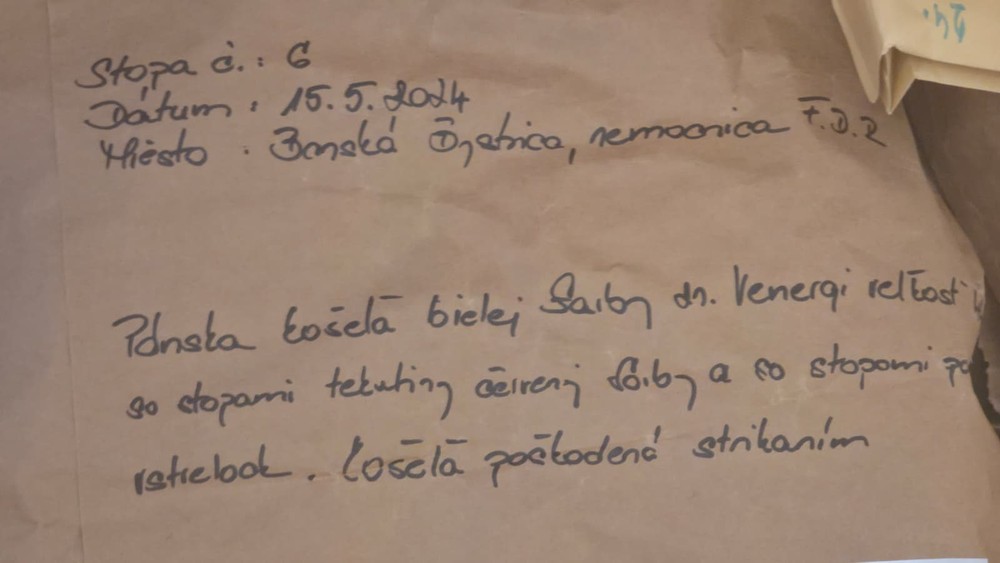 Stopa č. : 6
Dátum : 15.5.2024
Miesto : Banská Bystrica, nemocnica F.D.R
Pánska košeľa bielej farby zn. Venergi veľkosť
so stopami tekutiny červenej farby a so stopami po
výstreloch. Košeľa poškodená strihaním
24.